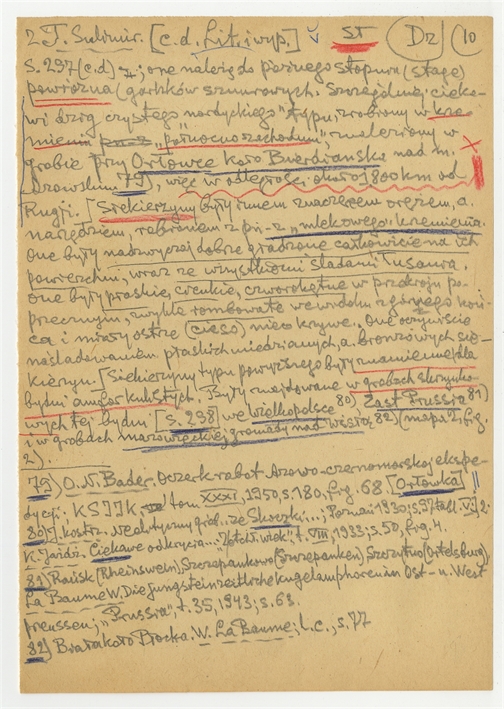 2 T. Sulimir. [c.d. Lit. i wyp.] ST Dz 10
S. 297 (c.d) one należą do późnego stopnia (stage)
powroźna (garnków sznurowych. Szczególnie cieka-
wi dziryt czystego nordyckiego "typu, zrobiony w krze-
mieniu "północno zachodnim", znaleziony w
grobie przy Orłowce koło Bierdiańska nad m.
Azowskim 79), więc w odległości około 1800 km od
Rugji. [Siekierzyny były innem znaczącem orężem, a.
narzędziem, robionem z "mlekowego" krzemienia.
One były nadzwyczaj dobrze gładzone całkowicie na ich
powierzchni, wraz ze wszystkimi śladami łusania.
one były płaskie, cienkie, czworokątne w przekroju po-
przecznym, zwykle rombowate we widoku z górnego koń-
ca i miały ostrze (cieso) nieco krzywe. One oczywiście
naśladowaniem płaskich miedzianych, a. bronzowych sie-
kierzyn. [Siekierzyny typu powyższego były znamienne dla
bydni amfor kulistych. Były znajdowane w grobach skrzynko-
wych tej bydni [S. 298] we Wielkopolsce 80) Zast Prussia 81)
i w grobach mazowieckiej gromady nad Wisłą 82) (mapa 2, fig.
2).
79) O. N. Bader. Oczerk rabot Azowo-czernomorskoj ekspe-
dycji; KSIIK tom XXXI, 1950, s. 180, fig. 68. [Orłowka]
80) J. Kostrz. Neolityczny grób ze Skwerki...; Poznań 1930; s. 37 tabl. VI; 2.
K. Jażdż. Ciekawe odkrycia... "Z otchł. wiek." t. VIII 1933; s. 50, fig. 4.
81) Rańsk (Rheinswein), Szczepankowo (Szczepanken) Szczytno (Ortelsburg)
La Baume W. Die jungsteinzeitliche Kugelamphoren in Ost- u. West
preussen; "Prussia", t. 35, 1943; s. 63.
82) Brała koło Płocka. W. La Baume; l. c., s. 77